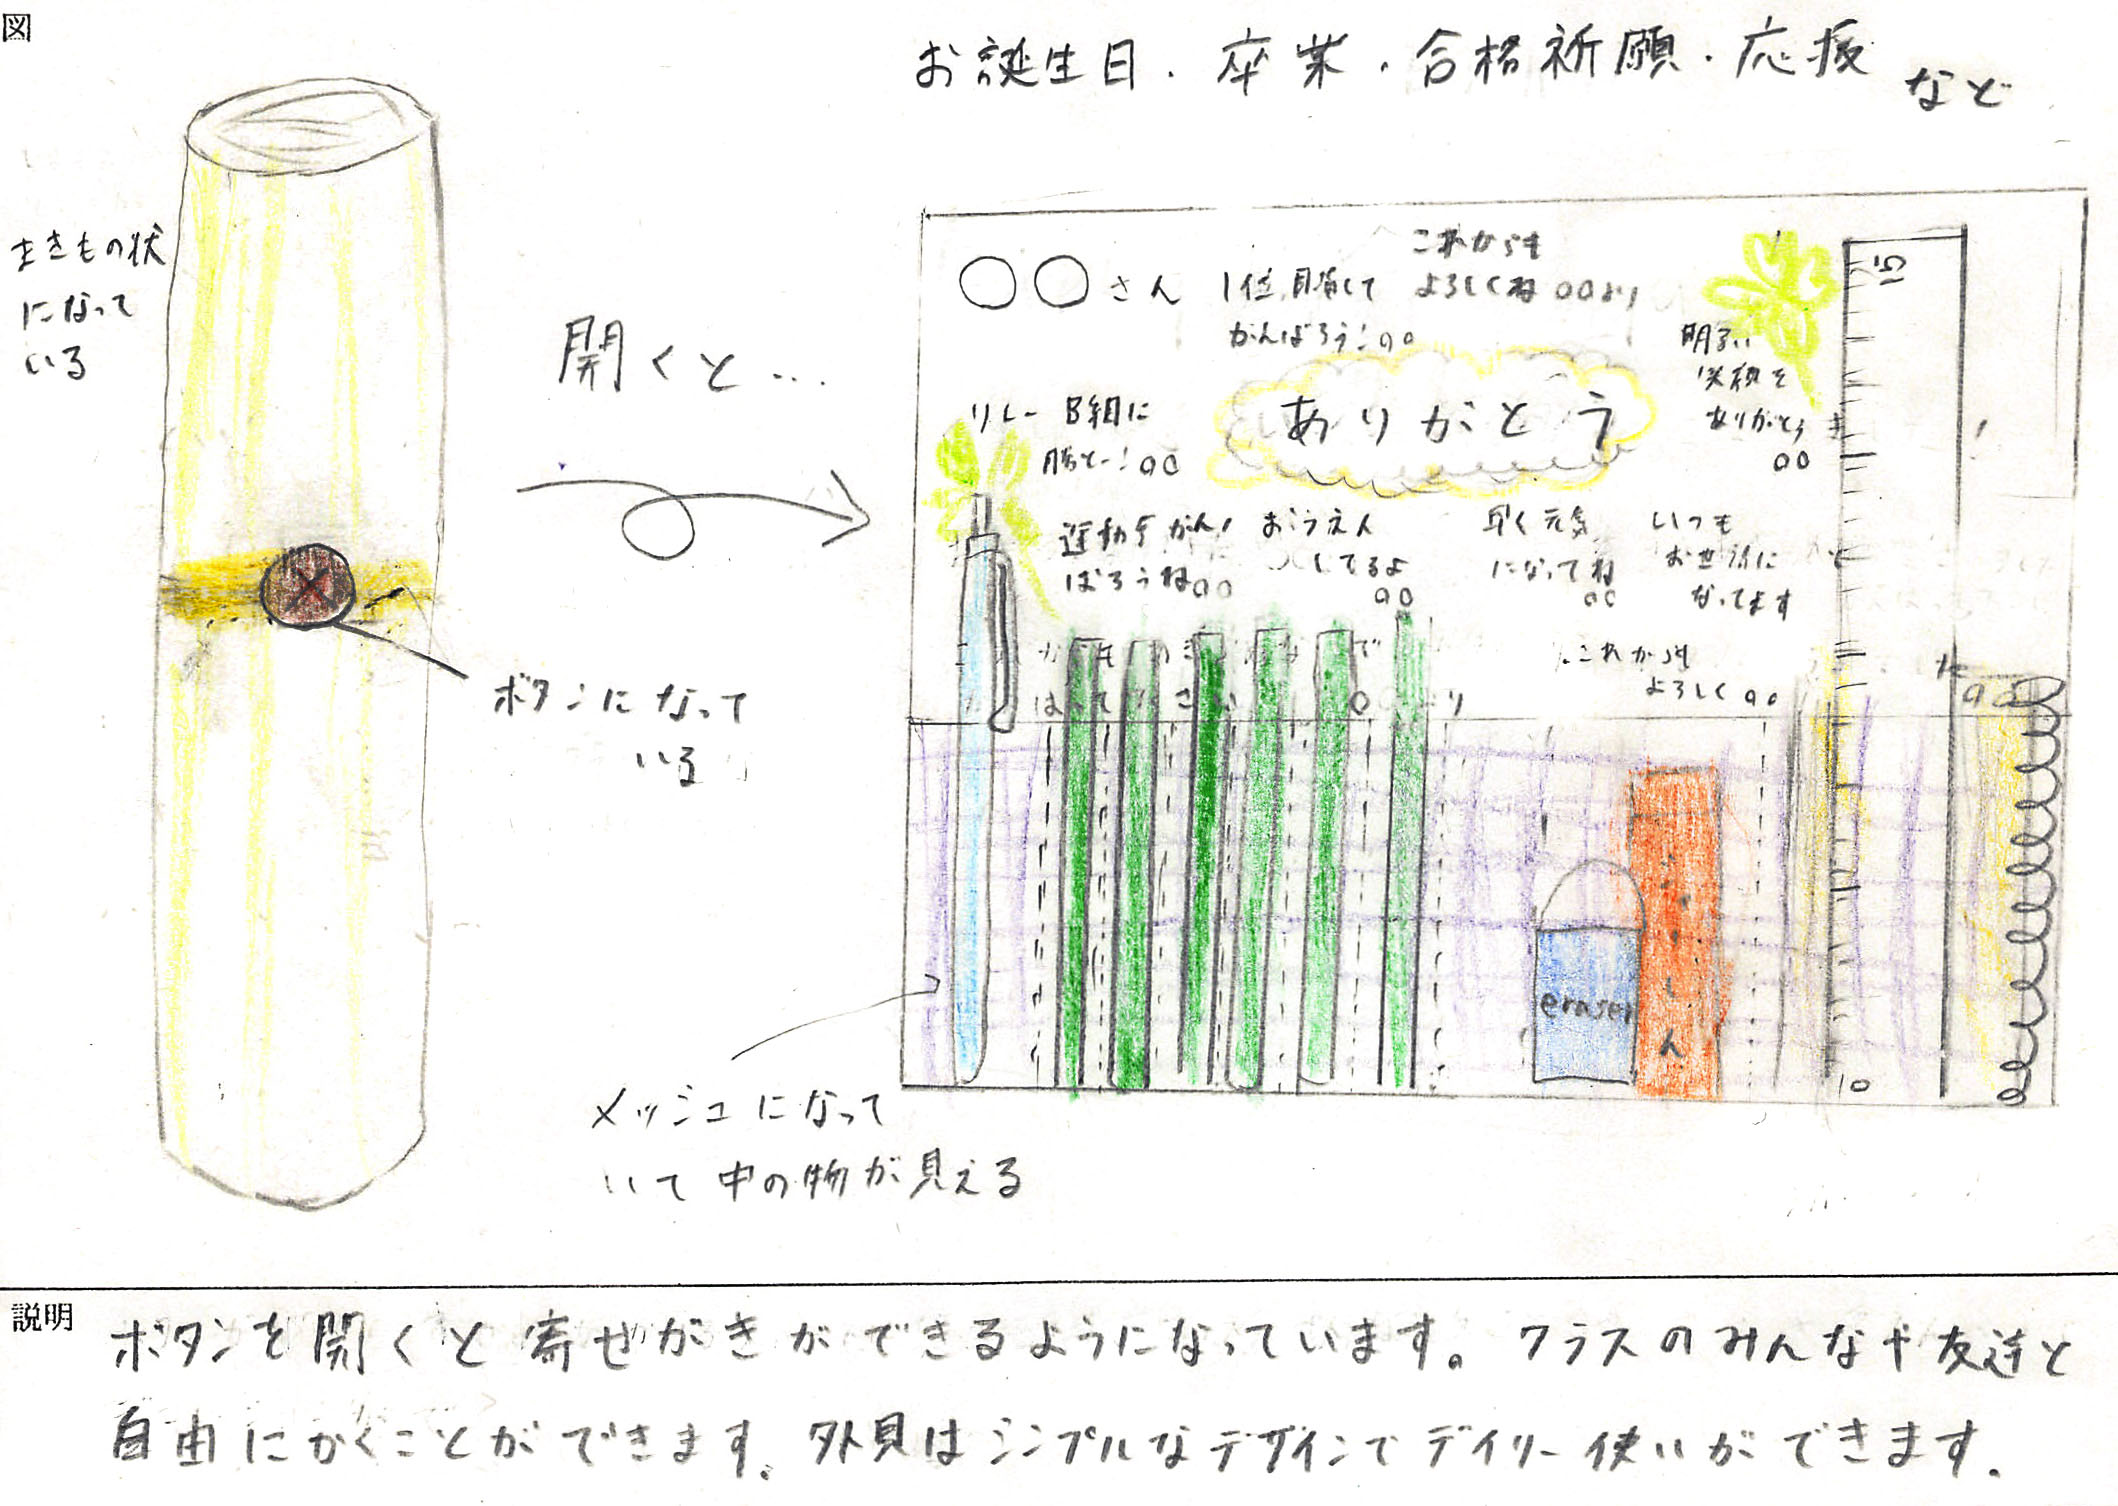 図
お誕生日・卒業・合格祈願・応援 など
まきもの状
になって
いる
開くと…
ボタンになって
いる
メッシュになって
いて中の物が見える
○○さん
1位目指して
がんばろう!○○
これからも
よろしくね ○○より
明るい
笑顔を
ありがとう
○○
リレーB組に
勝とー!○○
ありがとう
運動会がん
ばろうね○○
おうえん
してるよ
○○
早く元気
になってね
○○
いつも
お世話に
なってます
これからも
よろしく○○
15
10
eraser
ふせん
説明
ボタンを開くと寄せがきができるようになっています。クラスのみんなや友達と
自由にかくことができます。外見はシンプルなデザインでデイリー使いができます。